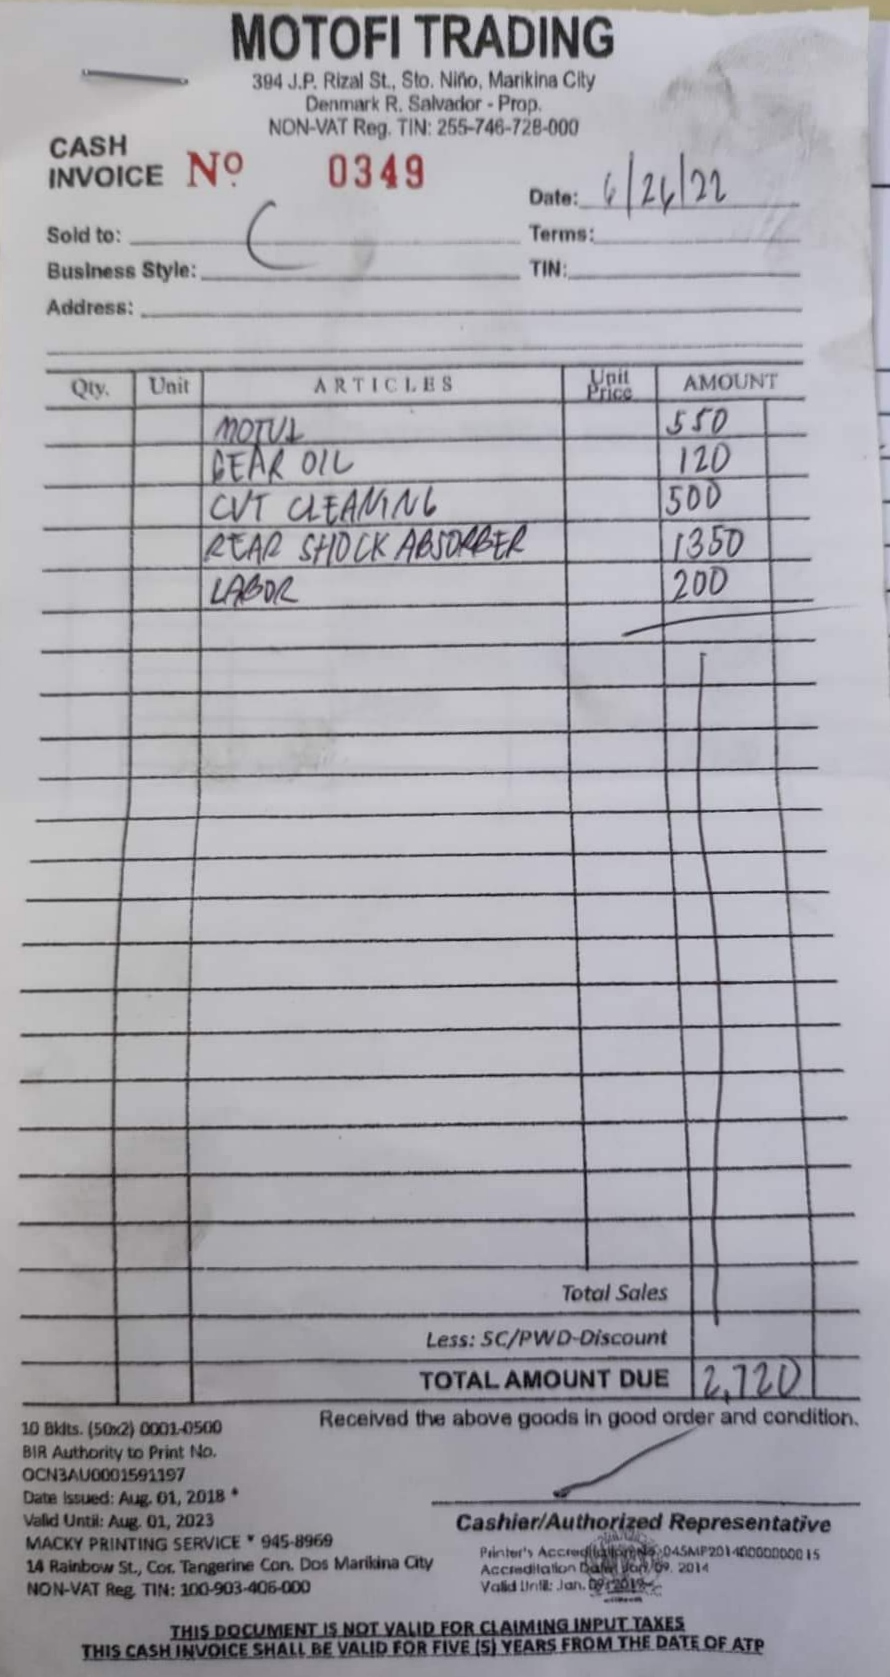 MOTOFI TRADING
394 J.P. Rizal St., Sto. Niño, Marikina City
Denmark R. Salvador - Prop.
NON-VAT Reg. TIN: 255-746-728-000
CASH INVOICE Nº 0349
Date: 6/26/22
Sold to: C
Terms:
Business Style:
TIN:
Address:
Qty. Unit ARTICLES Unit Price AMOUNT
MOTUL 550
GEAR OIL 120
CVT CLEANING 500
REAR SHOCK ABSORBER 1350
LABOR 200
Total Sales
Less: SC/PWD-Discount
TOTAL AMOUNT DUE 2,720
Received the above goods in good order and condition.
10 Bklts. (50x2) 0001-0500
BIR Authority to Print No.
OCN3AU0001591197
Date Issued: Aug. 01, 2018 *
Valid Until: Aug. 01, 2023
MACKY PRINTING SERVICE * 945-8969
14 Rainbow St., Cor. Tangerine Con. Dos Marikina City
NON-VAT Reg. TIN: 100-903-406-000
Cashier/Authorized Representative
Printer's Accreditation No. 045MP20140000000015
Accreditation Date: Jan. 09, 2014
Valid Until: Jan. 09, 2019
THIS DOCUMENT IS NOT VALID FOR CLAIMING INPUT TAXES
THIS CASH INVOICE SHALL BE VALID FOR FIVE (5) YEARS FROM THE DATE OF ATP